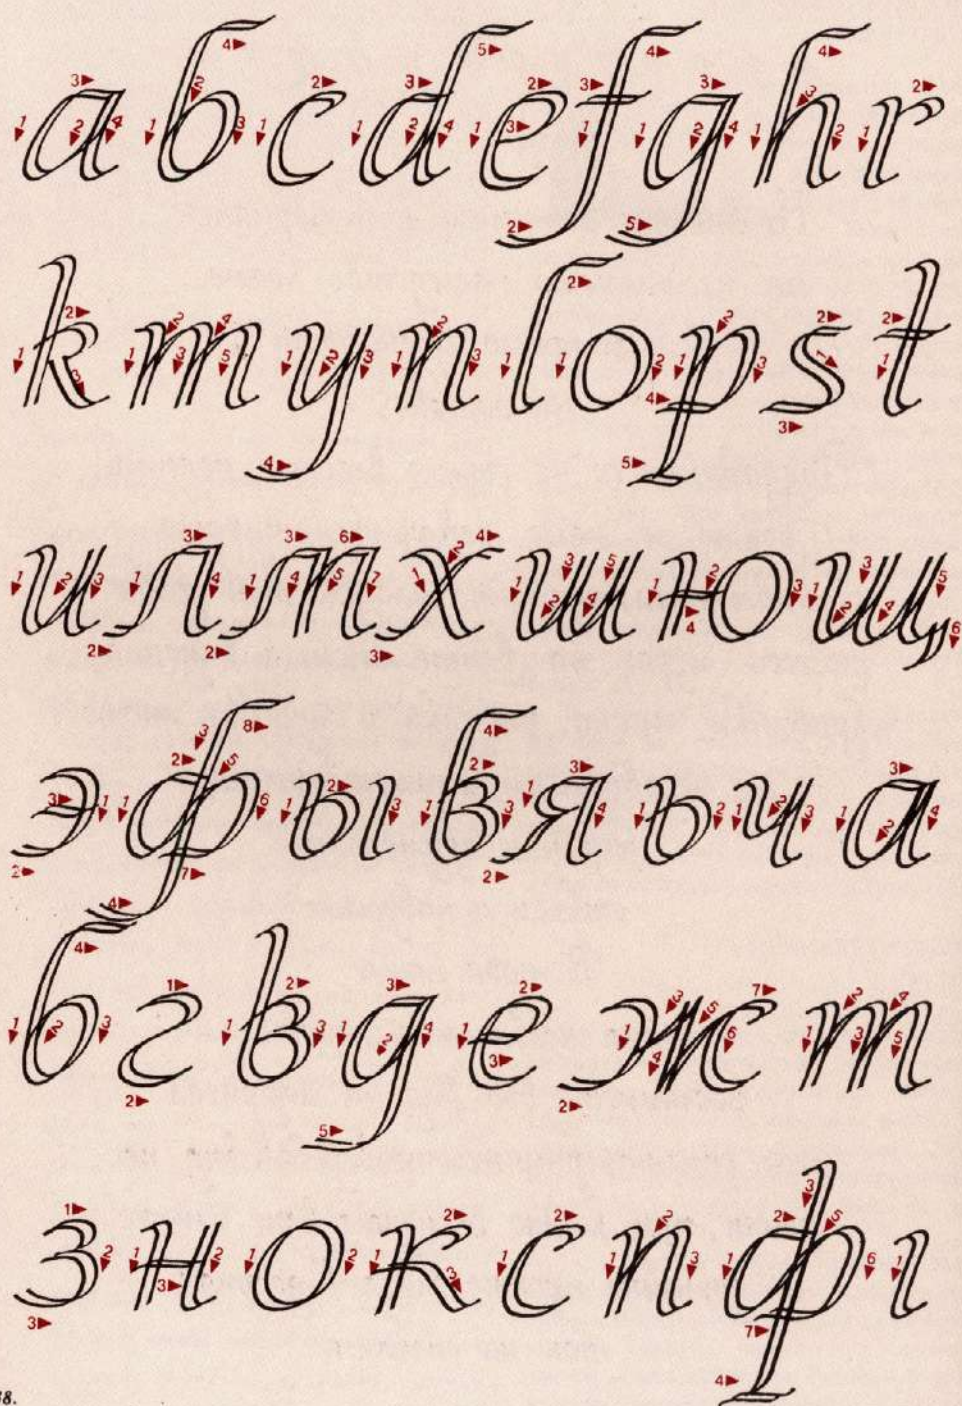 a b c d e f g h r
k m y n l o p s t
и л м х ш ю щ
э ф ы в я ь ч а
б г в д е ж т
з н о к с п ф ı